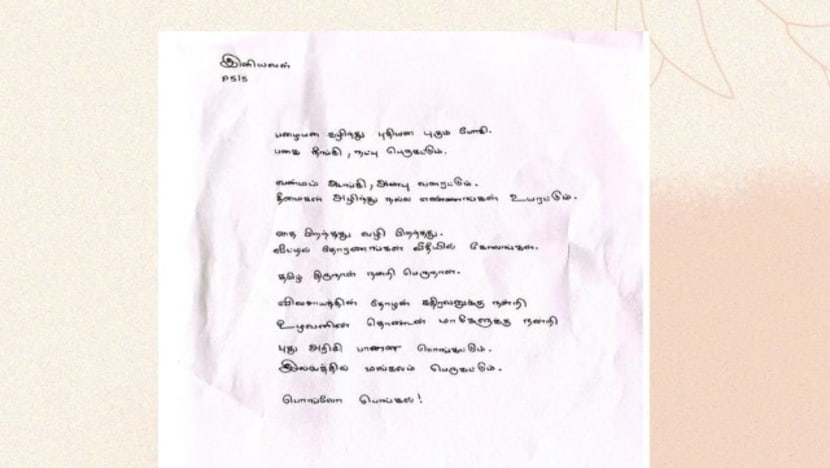 இனியவள்
P5/5
பழையன கழிந்து புதியன புகும் போகி.
பகை நீங்கி, நட்பு பெருகட்டும்.
வன்மம் அடங்கி, அன்பு வளரட்டும்.
தீமைகள் அழிந்து நல்ல எண்ணங்கள் உயரட்டும்.
தை பிறந்தது வழி பிறந்தது.
வீட்டில் தோரணங்கள் வீதியில் கோலங்கள்.
தமிழ் திருநாள் நன்றி பெருநாள்.
விவசாயத்தின் தோழன் கதிரவனுக்கு நன்றி
உழவனின் தொண்டன் மாடுகளுக்கு நன்றி
புது அரிசி பானை பொங்கட்டும்.
இல்லத்தில் மங்கலம் பெருகட்டும்.
பொங்லோ பொங்கல்!